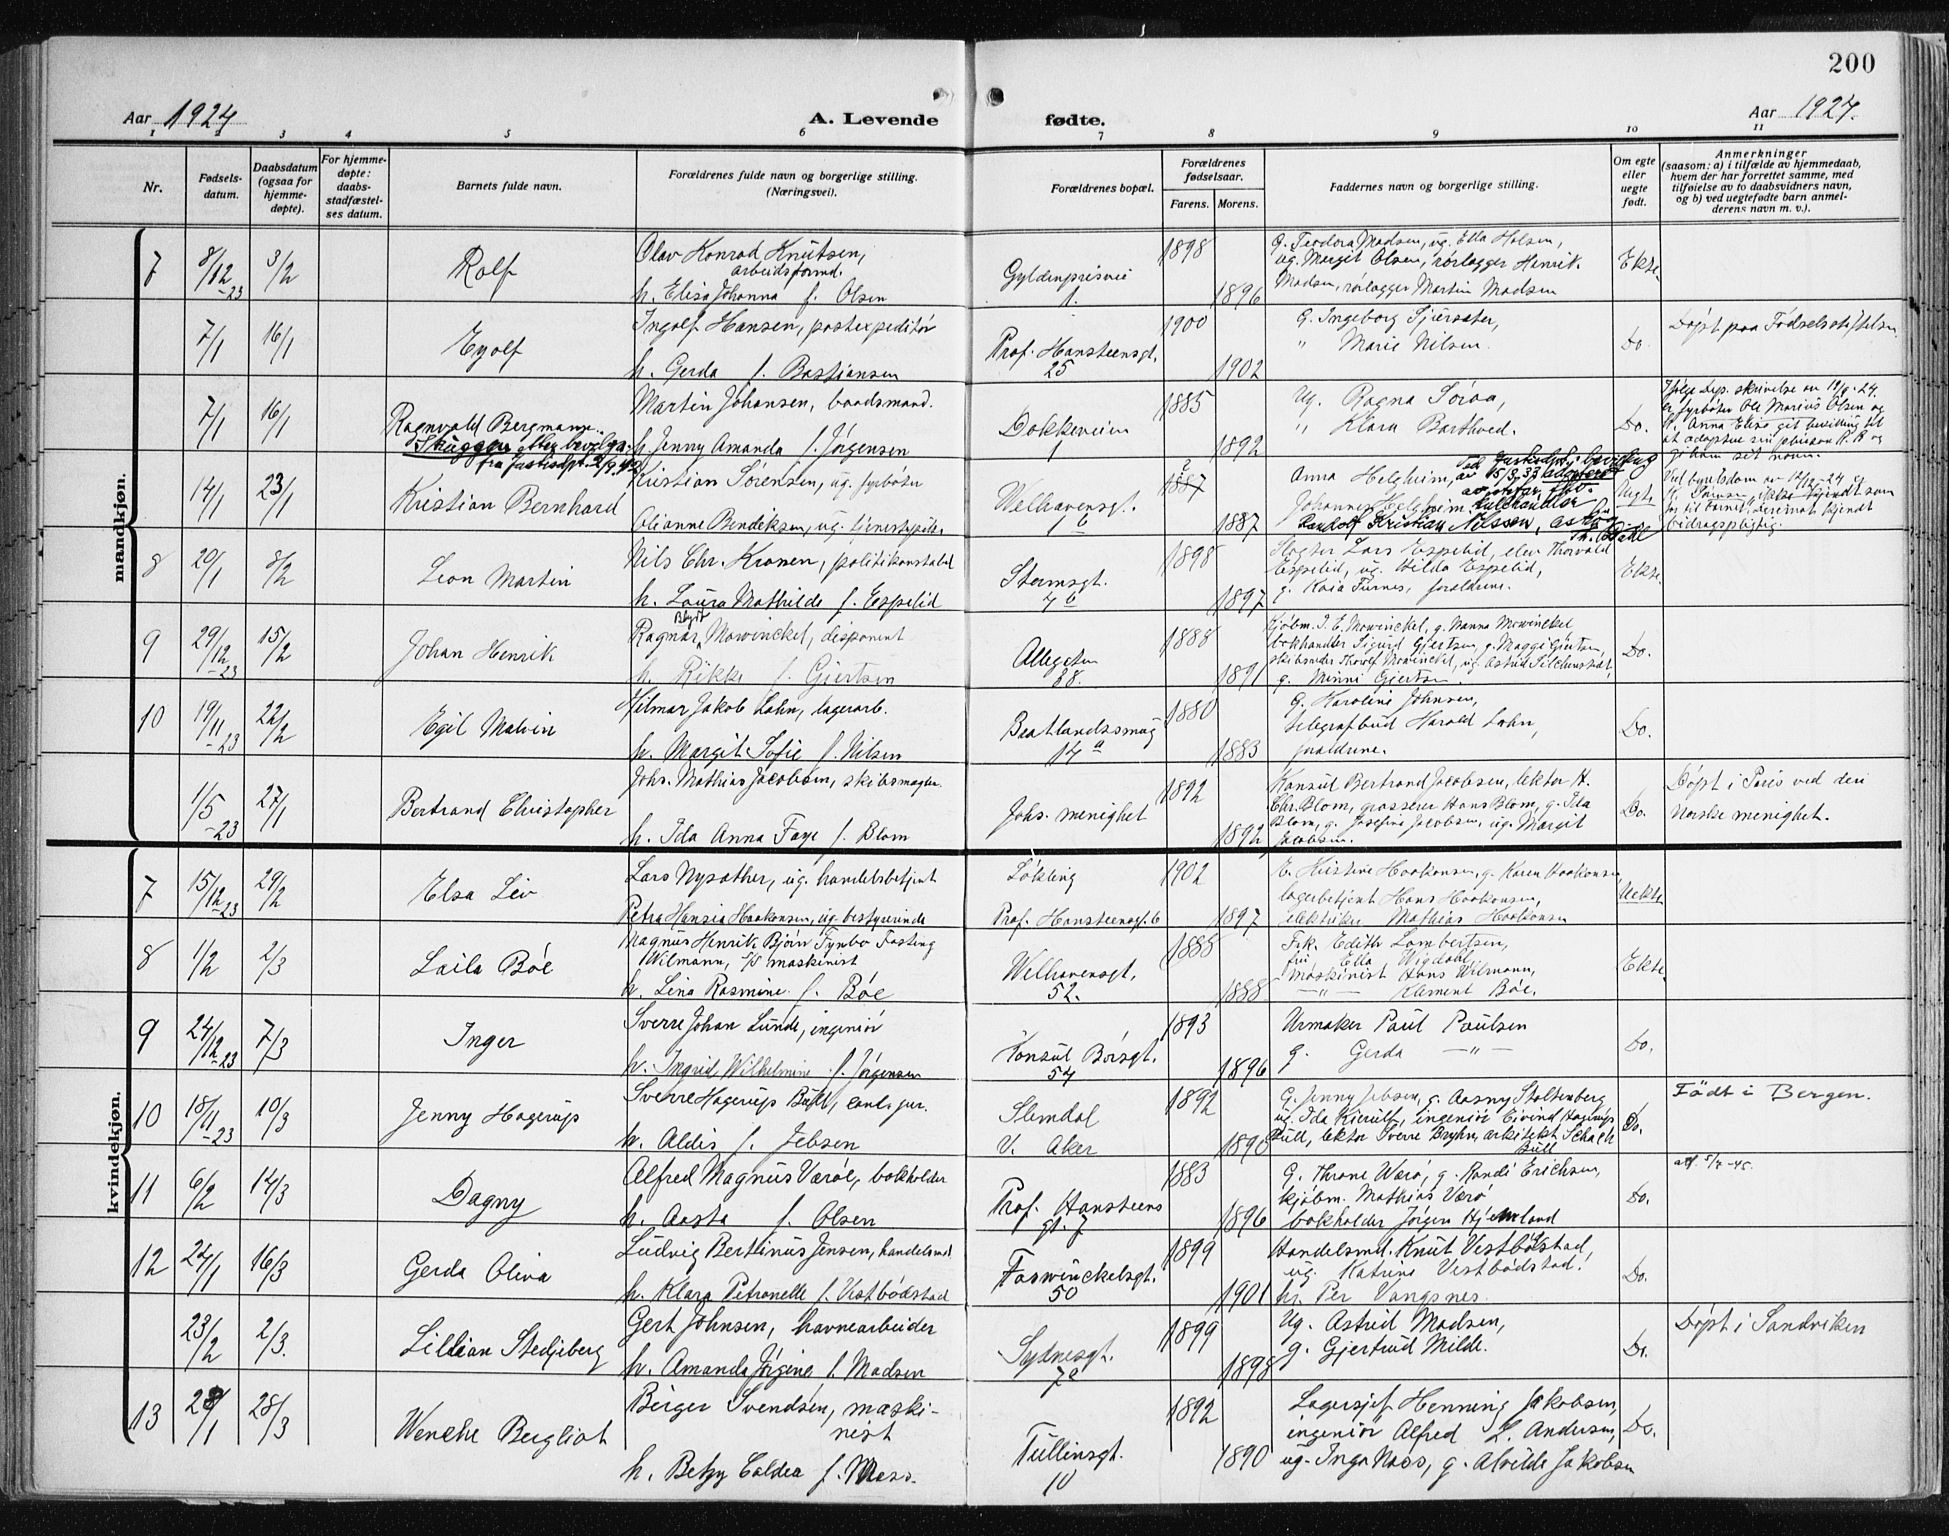 200
Aar 1924
A. Levende
fødte.
Aar 1924.
1 2 3 4 5 6 7 8 9 10 11
Nr.
Fødsels-
datum.
Daabsdatum
(ogsaa for
hjemme-
døpte).
For hjemme-
døpte:
daabs-
stadfæstel-
ses datum.
Barnets fulde navn.
Forældrenes fulde navn og borgerlige stilling.
(Næringsvei).
Forældrenes bopæl.
Forældrenes
fødselsaar.
Farens. Morens.
Faddernes navn og borgerlige stilling.
Om egte
eller
uegte
født.
Anmerkninger
(saasom: a) i tilfælde av hjemmedaab,
hvem der har forrettet samme, med
tilføielse av to daabsvidners navn,
og b) ved uegtefødte barn anmel-
derens navn m. v.).
mandkjøn.
7 8/12-23 3/2
Rolf
Olav Konrad Knutsen,
arbeidsformd.
h. Elisa Johanna f. Olsen
Gyldenprisvei
1.
1898
1896
G. Teodora Madsen, ug. Ella Holsen,
ug. Mergit Olsen, rørlægger Henrik
Madsen, rørlægger Martin Madsen
Ekte
7/1 16/1
Eyolf
Ingolf Hansen, postexpeditør
h. Gerda f. Bastiansen
Prof. Hansteensgt.
25
1900
1902
G. Ingeborg
" Marie Nilsen.
Do.
Døpt paa Fødselsstiftelsen
7/1 16/1
Ragnvald Bergmann
Martin Johansen, baadsmand.
h. Jenny Amanda f. Jørgensen
Dokkeveien
1
1885
1892
Ug. Ragna
" Klara Barthved.
Do.
Ifølge Dep. skrivelse av 19/9-24
er fyrbøter Ole Marius Olsen og
h. Anna Elise git bevilling til
at adoptere
gi ham sit navn.
14/1 23/1
Kristian Bernhard
Kristian Sørensen, ug. fyrbøter
Olianne Bendiksen, ug.
Welhavensgt.
1 b
1887
1887
Anna Helgheim,
Johannes Helgheim
Kristian Nilssen,
Uegte
Ved byretsdom av 14/12-24
far til barnet, derimot kjendt
bidragspligtig.
8 20/1 8/2
Leon Martin
Nils Chr. Kronen, politikonstabel
h. Laura Mathilde f. Espelid
Stormsgt.
7 b
1898
1897
Slagter Lars Espelid, elev Thorvald
Espelid, ug. Hilda Espelid,
g. Kaia Furnes, forældrene.
Ekte
9 29/12-23 15/2
Johan Henrik
Ragnar Mowinckel, disponent
h. Rikke f. Gjertsen
Allegaten
88.
1888
1891
Kjøbm. J. E. Mowinckel, g. Nanna Mowinckel
bokhandler Sigurd Gjertsen, g. Maggi Gjertsen,
skibsreder Thorolf Mowinckel, ug. Astrid
g. Minni Gjertsen.
Do.
10 19/11-23 22/2
Egil Malvin
Hilmar Jakob Lahn, lagerarb.
h. Margit Sofie f. Nilsen
Beatlandssmug
14 a
1880
1883
G. Karoline Johnsen,
telegrafbud Harald Lahn,
forældrene.
Do.
1/5-23 27/1
Bertrand Christopher
Johs. Mathias Jacobsen, skibsmægler
h. Ida Anna Faye f. Blom
Johs. menighet
1892
1892
Konsul Bertrand Jacobsen, lektor H.
Chr. Blom, grosserer Hans Blom, g. Ida
Blom, g. Josefine Jacobsen, ug. Margit
Jacobsen.
Do.
Døpt i Paris ved den
Norske menighet.
kvindekjøn.
7 15/12-23 29/2
Elsa Liv
Lars Nysæther, ug. handelsbetjent
Petra Hansia Haakonsen, ug. bestyrerinde
Løkling
Prof. Hansteensgt. 6
1902
1897
E. Kristine Haakonsen, g. Karen Haakonsen,
lagerbetjent Hans Haakonsen
elektriker Mathias Haakonsen
Uekte
8 1/2 2/3
Laila Bøe
Magnus Henrik Bjørn Fynbo Fasting
Wilmann, s/s maskinist
h. Lina Rasmine f. Bøe
Welhavensgt.
52.
1885
1888
Frk. Edith Lambertsen,
frk. Ella Wigdahl,
Maskinist Hans Wilmann,
—"— Klement Bøe.
Ekte
9 24/12-23 7/3
Inger
Sverre Johan Lunde, ingeniør
h. Ingrid Wilhelmine f. Jørgensen
Konsul Børsgt.
54
1893
1896
Urmaker Paul Paulsen
g. Gerda —"—
Do.
10 18/11-23 10/3
Jenny Hagerup
Sverre Hagerup Bull, cand. jur.
h. Aldis f. Jebsen
Slemdal
V. Aker
1892
1890
G. Jenny Jebsen, g. Aasny Stoltenberg
ug. Ida Kierulf, ingeniør Eivind Hagerup
Bull, lektor Sverre Bryhn, arkitekt Schach
Bull
Do.
Født i Bergen.
11 6/2 14/3
Dagny
Alfred Magnus Værøe, bokholder
h. Aasta f. Olsen
Prof. Hansteens
gt. 7
1883
1896
G. Throne Værø, g. Randi Erichsen,
kjøbm. Mathias Værø
bokholder Jørgen Hjelmland
Do.
att. 5/7-45.
12 24/1 16/3
Gerda Oliva
Ludvig Bertinus Jensen, handelsmd
h. Klara Petronelle f. Vestbødstad
Foswinckelsgt.
50
1899
1901
Handelsmd. Knut Vestbødstad,
ug. Katrine Vestbødstad.
hr. Per Vangsnes.
Do.
23/2 2/3.
Lillian Stedjeberg
Gert Johnsen, havnearbeider
h. Amanda Jørgine f. Madsen
Sydnesgt.
7a
1899
1898
Ug. Astrid Madsen,
g. Gjertrud Milde.
Do.
Døpt i Sandviken
13 28/1 28/3
Wenche Bergliot
Berger Svendsen, maski-
nist
h. Betzy Caldea f. Næss.
Tullinsgt.
10
1892
1890
Lagersjef Henning Jakobsen,
ingeniør Alfred L. Andersen,
ug. Inga Næss, g. Alvilde Jakobsen
Do.